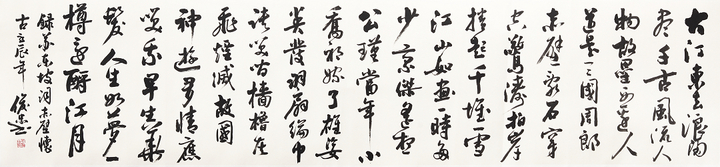 大江東去浪淘
盡千古風流人
物故壘西邊人
道是三國周郎
赤壁亂石穿
空驚濤拍岸
捲起千堆雪
江山如畫一時多
少豪傑遙想
公瑾當年小
喬初嫁了雄姿
英發羽扇綸巾
談笑間檣櫓灰
飛煙滅故國
神遊多情應
笑我早生華
髮人生如夢一
樽還酹江月
錄蘇東坡詞赤壁懷
古壬辰年